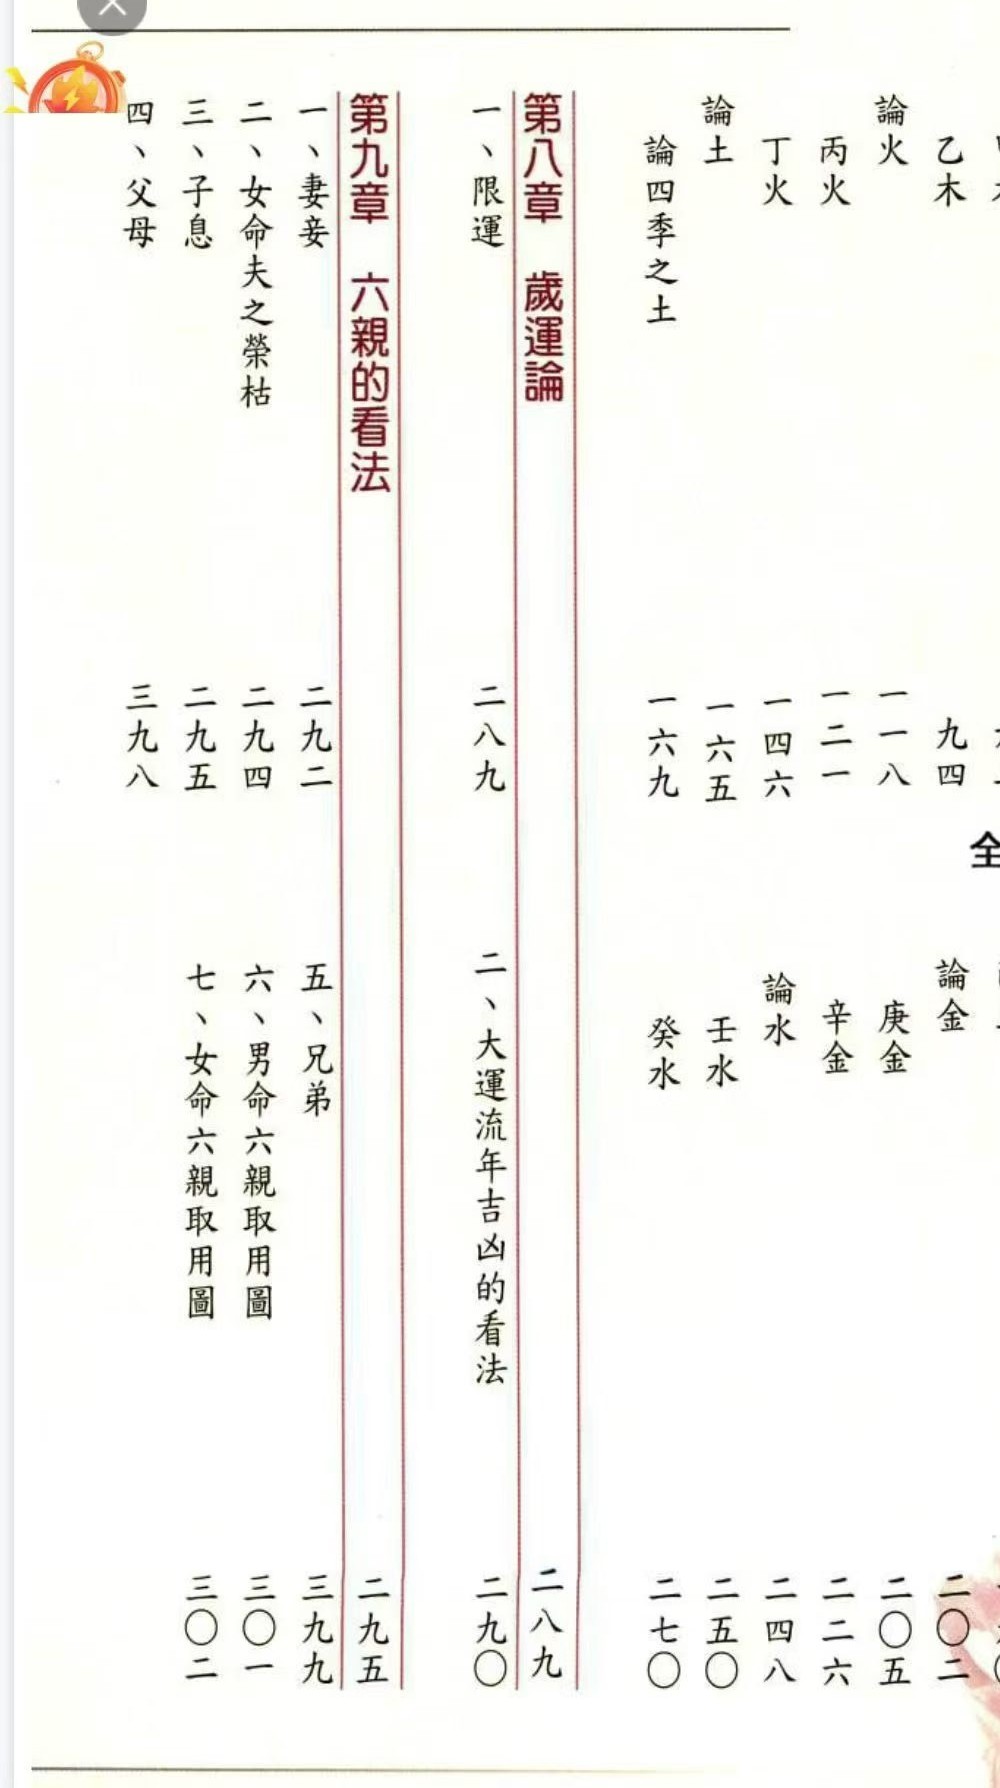 乙木
九四
論火
一一八
丙火
一二一
丁火
一四六
論土
一六五
論四季之土
一六九
全
論金
二〇二
庚金
二〇五
辛金
二二六
論水
二四八
壬水
二五〇
癸水
二七〇
第八章 歲運論
二八九
一、限運
二八九
二、大運流年吉凶的看法
二九〇
第九章 六親的看法
二九五
一、妻妾
二九二
二、女命夫之榮枯
二九四
三、子息
二九五
四、父母
三九八
五、兄弟
三九九
六、男命六親取用圖
三〇一
七、女命六親取用圖
三〇二